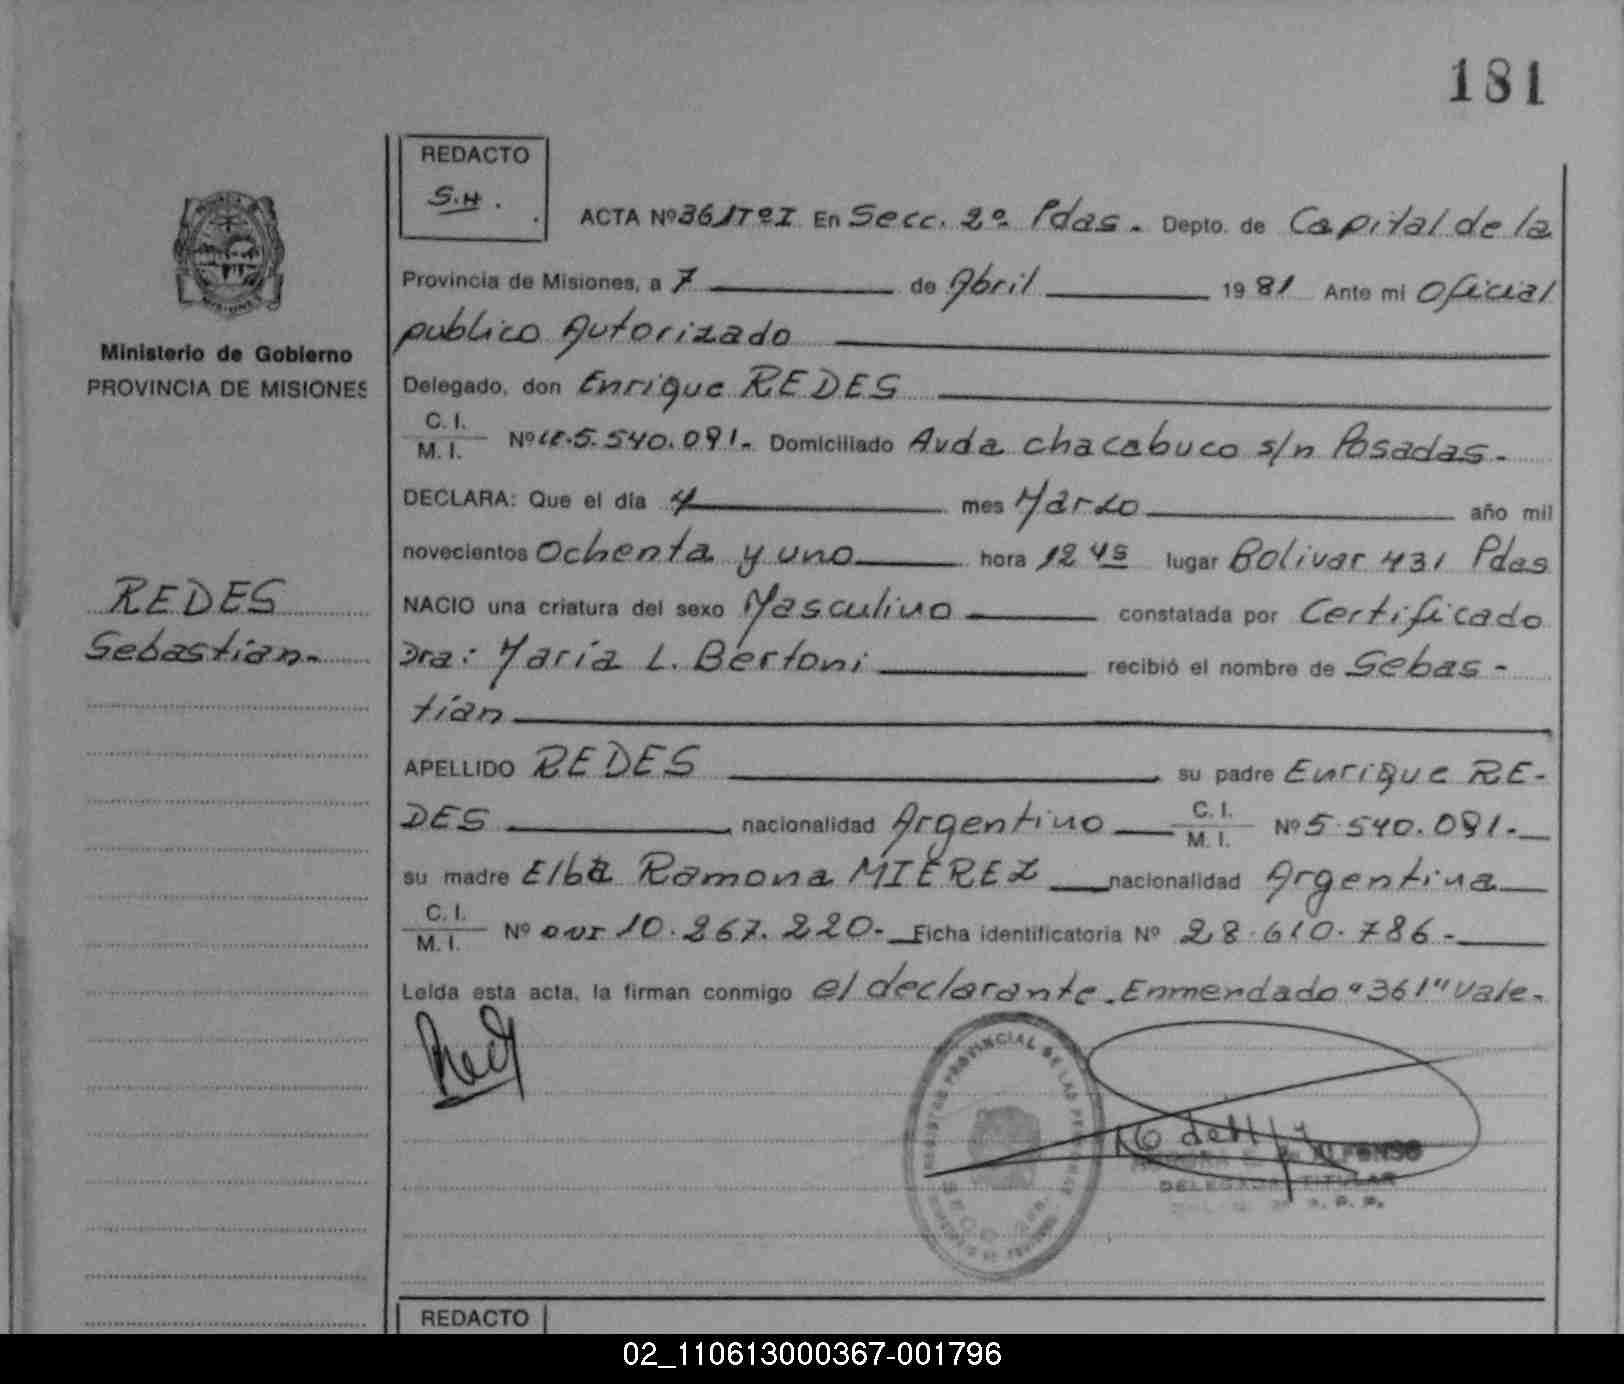 181
REDACTO
S.H.
ACTA Nº 361TºI En Secc. 2º Pdas. Depto. de Capital de la
Provincia de Misiones, a 7 de Abril 1981 Ante mi Oficial
publico Autorizado
Ministerio de Gobierno
PROVINCIA DE MISIONES
Delegado, don Enrique REDES
C. I.
M. I. Nº LE.5.540.091.- Domiciliado Avda chacabuco s/n Posadas.-
DECLARA: Que el día 4 mes Marzo año mil
novecientos Ochenta y uno hora 12 45 lugar Bolivar 431 Pdas
REDES
Sebastián.-
NACIO una criatura del sexo Masculino constatada por Certificado
Dra: María L. Bertoni recibió el nombre de Sebas-
tián
APELLIDO REDES su padre Enrique RE-
DES nacionalidad Argentino C. I. M. I. Nº 5.540.091.-
su madre Elba Ramona MIEREZ nacionalidad Argentina
C. I.
M. I. Nº DNI 10.267.220.- Ficha identificatoria Nº 28.610.786.-
Leída esta acta, la firman conmigo el declarante. Enmendado "361" Vale.-
PROVINCIAL DE LAS
SECC. 2da.
ALFONSO
DELEGADA TITULAR
REDACTO
02_110613000367-001796